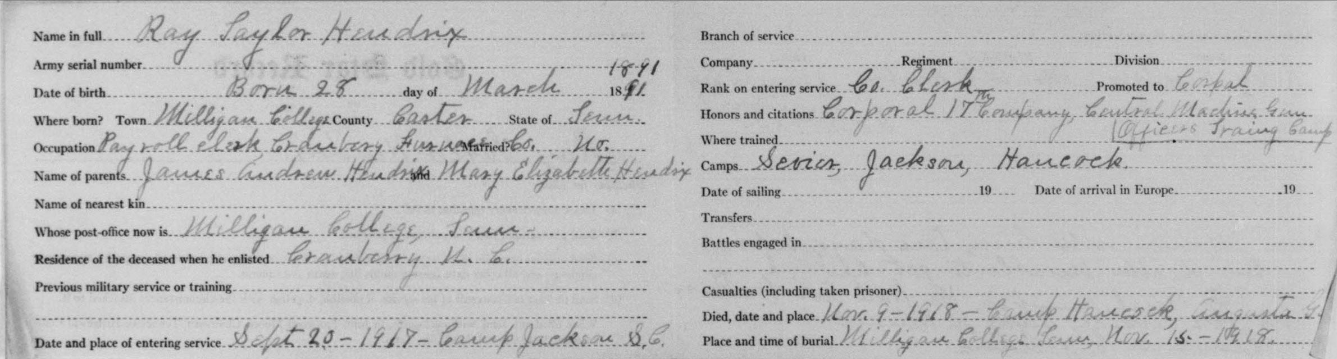 Name in full Ray Taylor Hendrix
Army serial number
1891
Date of birth Born 28 day of March 1891
Where born? Town Milligan College County Carter State of Tenn.
Occupation Payroll clerk Cranberry Furnace Co. Married? No.
Name of parents James Andrew Hendrix and Mary Elizabeth Hendrix
Name of nearest kin
Whose post-office now is Milligan College, Tenn.
Residence of the deceased when he enlisted Cranberry N. C.
Previous military service or training
Date and place of entering service Sept 20 - 1917 - Camp Jackson S.C.
Branch of service
Company Regiment Division
Rank on entering service Co. Clerk Promoted to Corpal
Honors and citations Corporal 17th Company, Central Machine Gun
Where trained (Officers Traing Camp
Camps Sevier, Jackson, Hancock.
Date of sailing 19 Date of arrival in Europe 19
Transfers
Battles engaged in
Casualties (including taken prisoner)
Died, date and place Nov. 9 - 1918 - Camp Hancock, Augusta G.
Place and time of burial Milligan College Tenn, Nov. 15 - 1918.